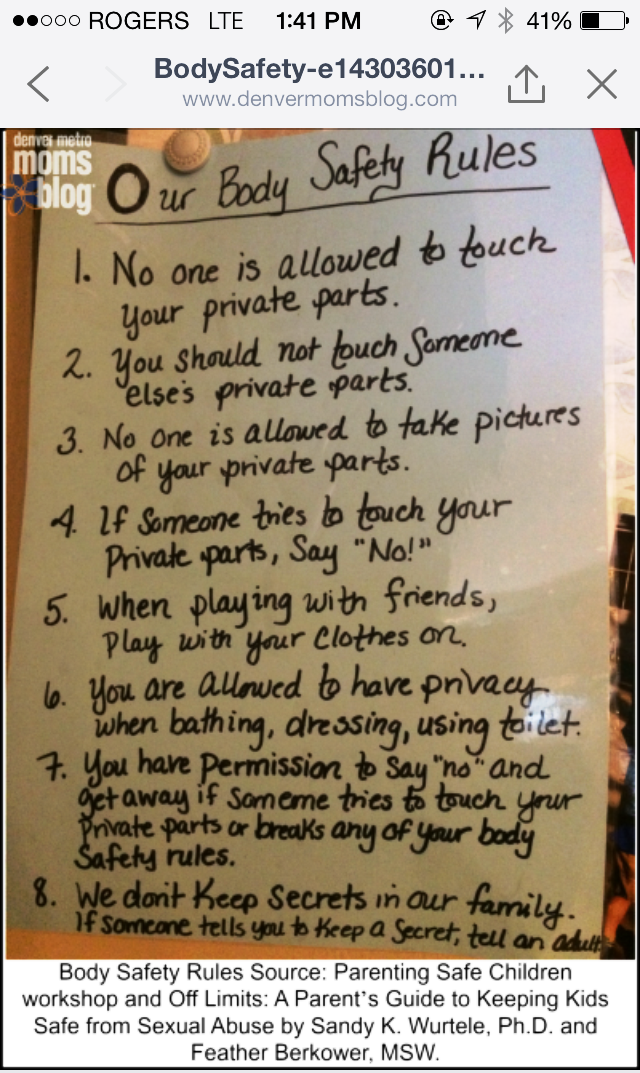 ROGERS LTE 1:41 PM 41%
BodySafety-e14303601...
www.denvermomsblog.com
denver metro
moms
blog
Our Body Safety Rules
1. No one is allowed to touch
your private parts.
2. You should not touch Someone
else's private parts.
3. No one is allowed to take pictures
of your private parts.
4. If Someone tries to touch your
Private parts, Say "No!"
5. When playing with friends,
Play with your Clothes on.
6. You are allowed to have privacy
when bathing, dressing, using toilet.
7. You have Permission to Say "no" and
get away if Someone tries to touch your
Private parts or breaks any of your body
Safety rules.
8. We don't Keep Secrets in our family.
If Someone tells you to Keep a Secret, tell an adult
Body Safety Rules Source: Parenting Safe Children
workshop and Off Limits: A Parent's Guide to Keeping Kids
Safe from Sexual Abuse by Sandy K. Wurtele, Ph.D. and
Feather Berkower, MSW.